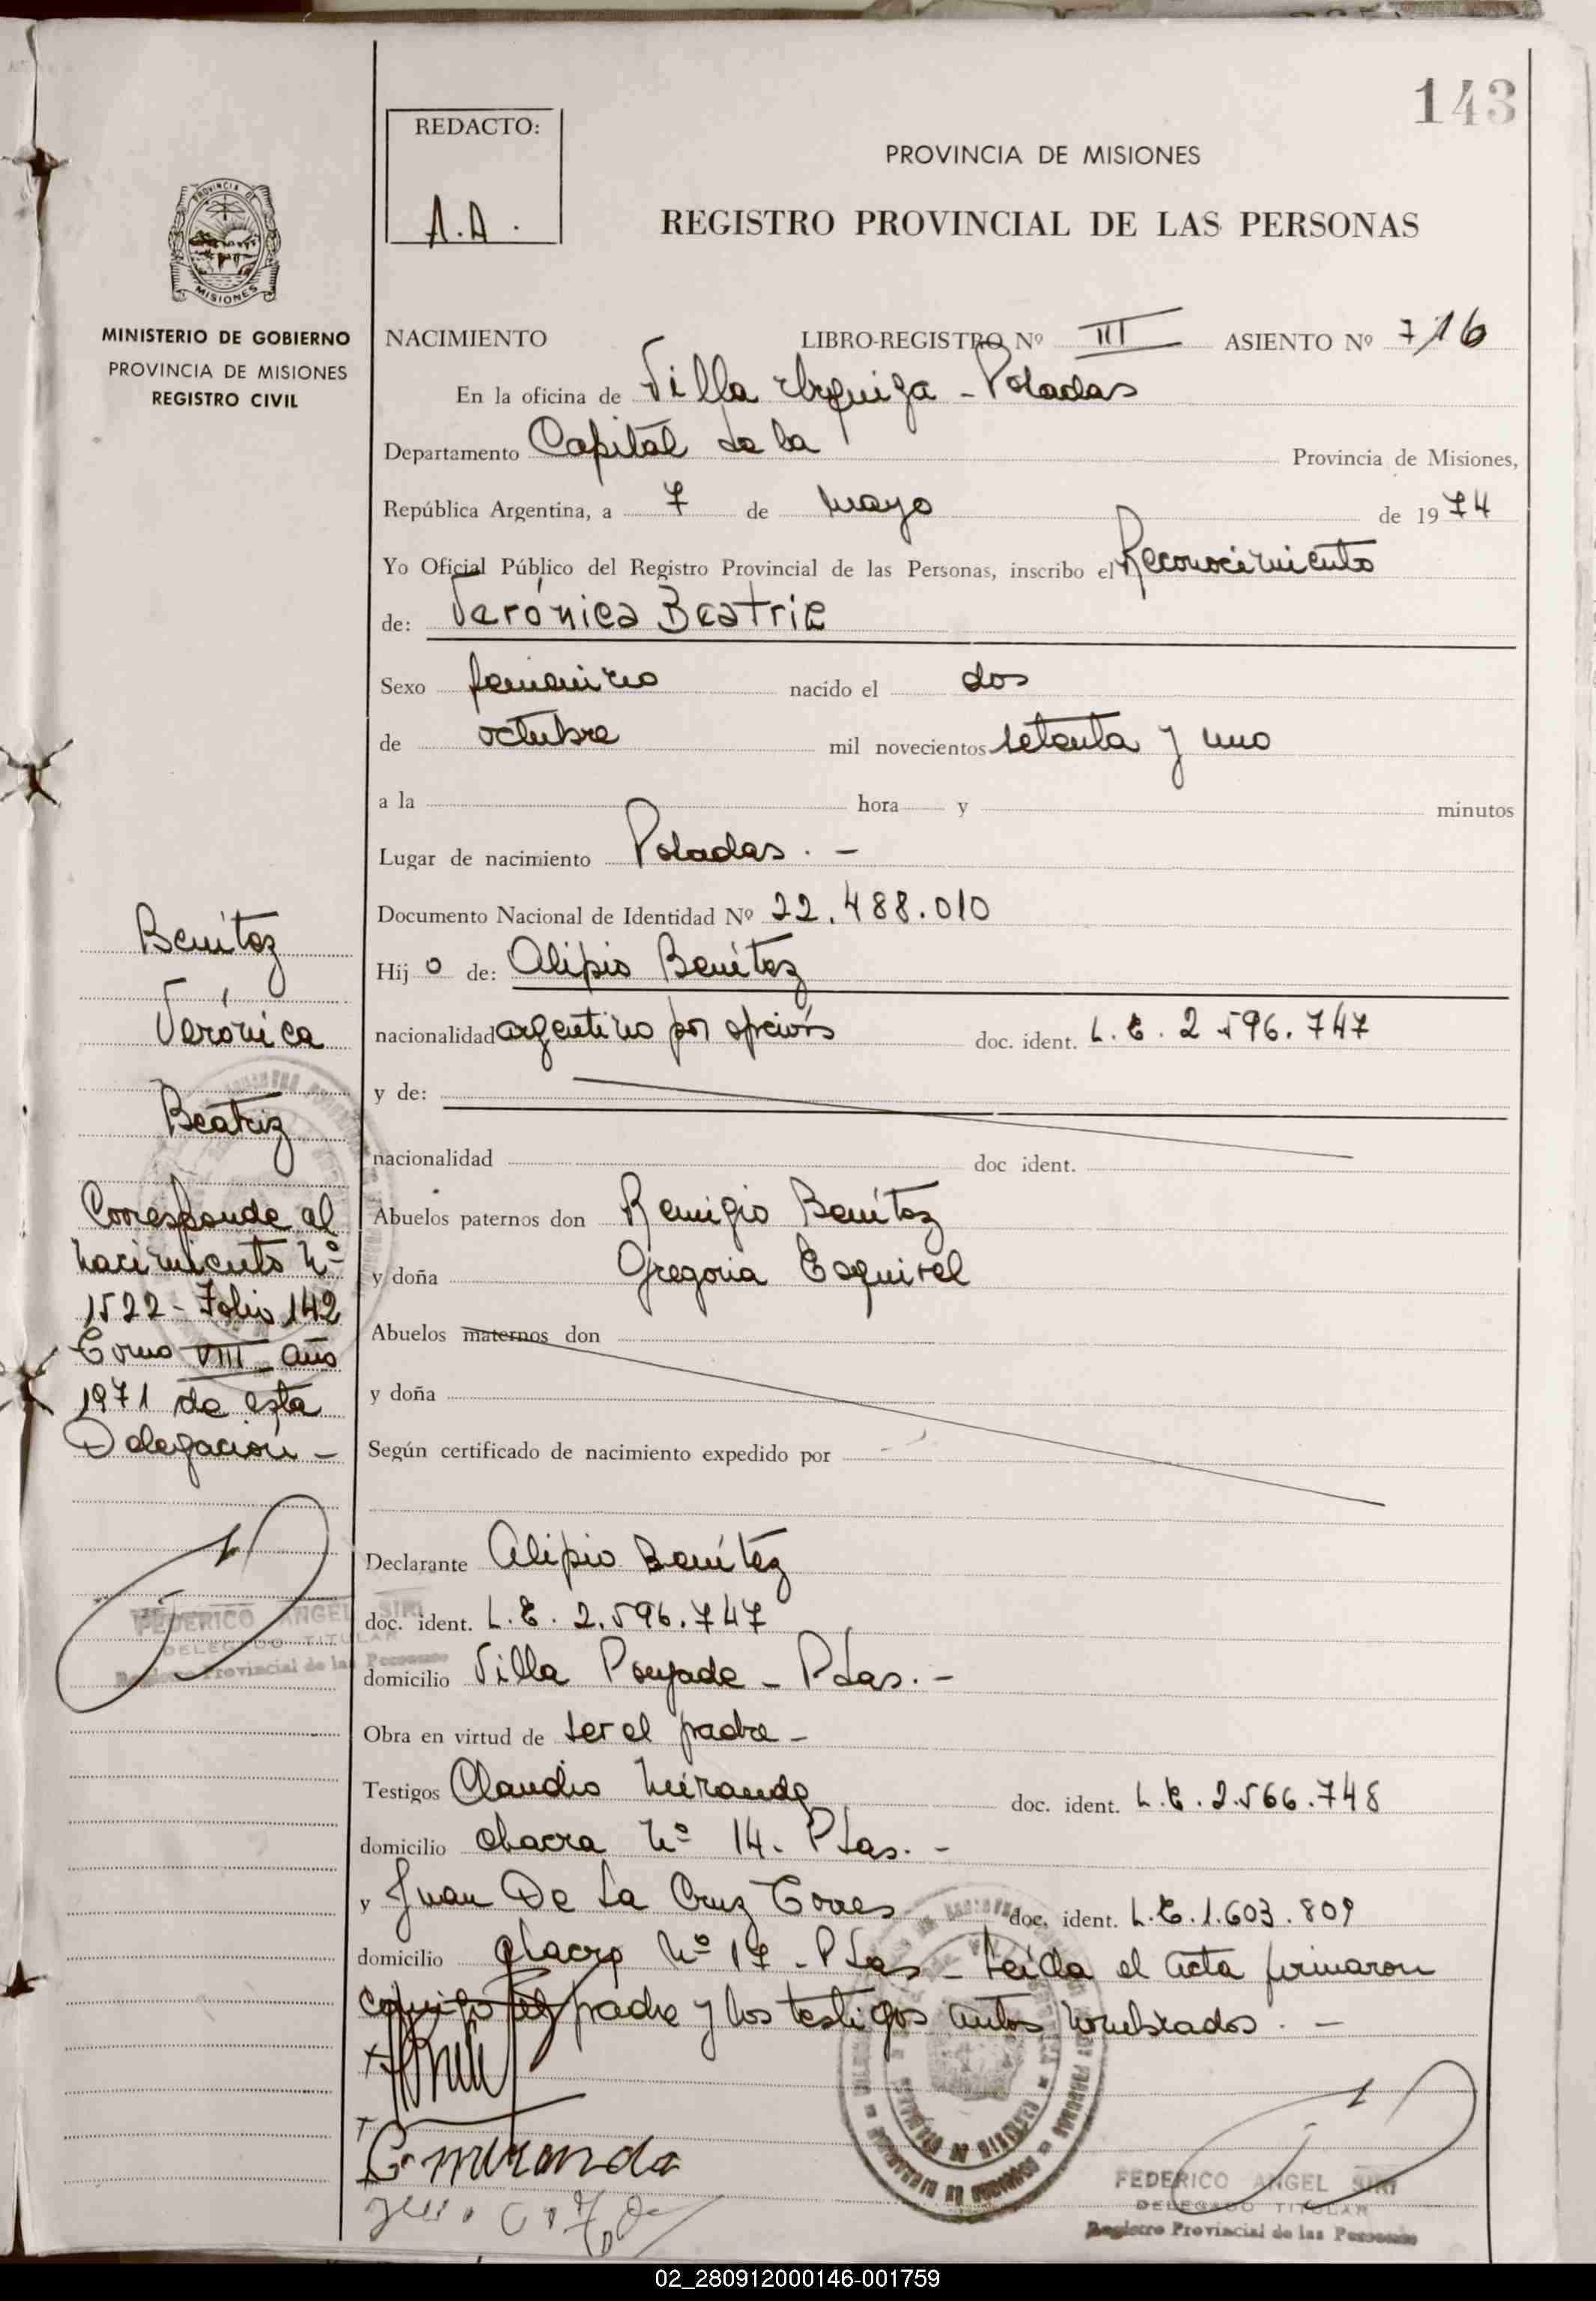 143
REDACTO:
A.A.
PROVINCIA DE MISIONES
REGISTRO PROVINCIAL DE LAS PERSONAS
PROVINCIA DE
MISIONES
MINISTERIO DE GOBIERNO
PROVINCIA DE MISIONES
REGISTRO CIVIL
NACIMIENTO LIBRO-REGISTRO Nº III ASIENTO Nº 716
En la oficina de Villa Urquiza - Posadas
Departamento Capital de la Provincia de Misiones,
República Argentina, a 7 de mayo de 1974
Yo Oficial Público del Registro Provincial de las Personas, inscribo el Reconocimiento
de: Verónica Beatriz
Sexo femenino nacido el dos
de octubre mil novecientos setenta y uno
a la hora y minutos
Lugar de nacimiento Posadas. -
Documento Nacional de Identidad Nº 22.488.010
Hijo de: Alipio Benítez
nacionalidad argentino por opción doc. ident. L.E. 2.596.747
y de:
nacionalidad doc ident.
Abuelos paternos don Remigio Benítez
y doña Gregoria Esquivel
Abuelos maternos don
y doña
Según certificado de nacimiento expedido por
Declarante Alipio Benítez
doc. ident. L.E. 2.596.747
domicilio Villa Poujade - Pdas. -
Obra en virtud de ser el padre -
Testigos Claudio Miranda doc. ident. L.E. 2.566.748
domicilio chacra Nº 14. Pdas. -
y Juan De La Cruz Torres doc. ident. L.E. 1.603.809
domicilio chacra Nº 17 - Pdas - Leída el acta firmaron
conmigo el padre y los testigos antes nombrados. -
C. Miranda
FEDERICO ANGEL SIRI
DELEGADO TITULAR
Registro Provincial de las Personas
Benítez
Verónica
Beatriz
Corresponde al
nacimiento Nº
1522 - Folio 142
Tomo VIII - año
1971 de esta
Delegación -
FEDERICO ANGEL SIRI
DELEGADO TITULAR
Registro Provincial de las Personas
02_280912000146-001759